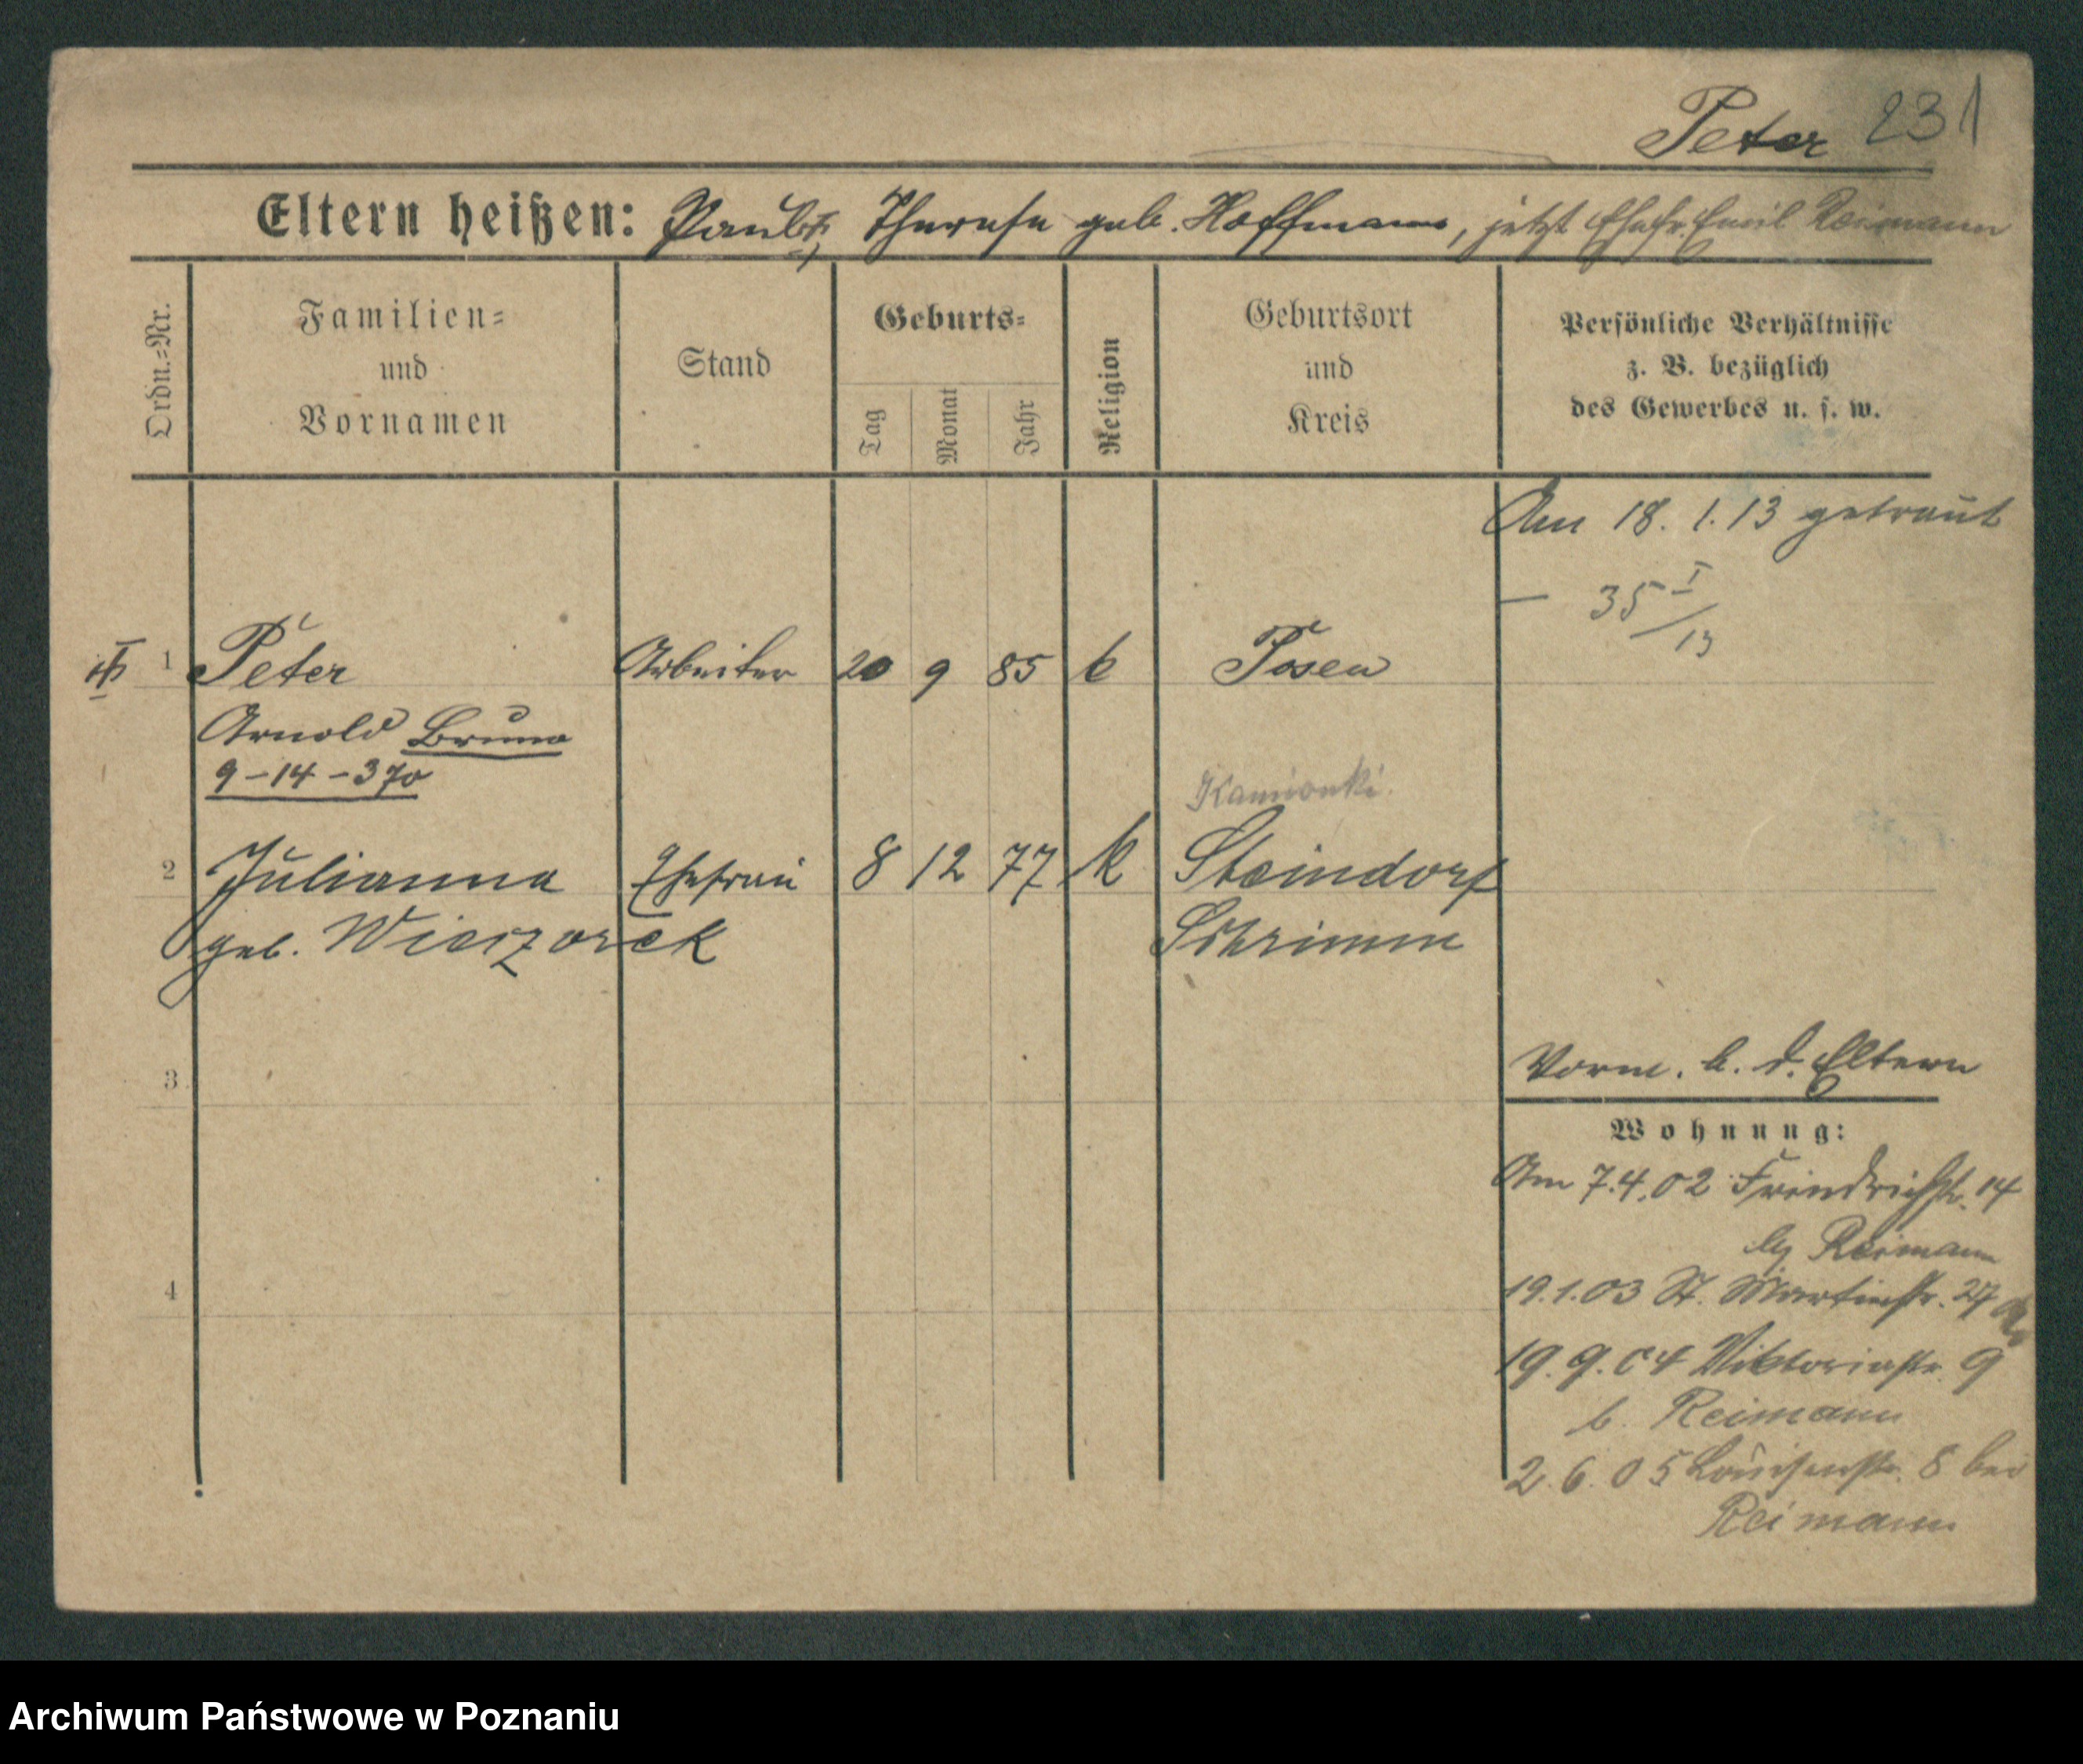 Peter 231
Eltern heißen: Paul †, Therese geb. Hoffmann, jetzt Ehefr. Emil Reimann
Ordn.-Nr.
Familien-
und
Vornamen
Stand
Geburts-
Tag
Monat
Jahr
Religion
Geburtsort
und
Kreis
Persönliche Verhältnisse
z. B. bezüglich
des Gewerbes u. s. w.
Am 18. 1. 13 getraut
— 35 I/13
1 Peter Arbeiter 20 9 85 k Posen
Arnold Bruno
9-14-370
Kamionki
2 Julianna Ehefrau 8 12 77 k Steindorf
geb. Wieczorek Schrimm
3
Vorm. b. d. Eltern
Wohnung:
Am 7.4.02 Friedrichstr. 14
bei Reimann
4
19.1.03 St. Martinstr. 27
19.9.04 Viktoriastr. 9
b. Reimann
2.6.05 Louisenstr. 8 bei
Reimann
Archiwum Państwowe w Poznaniu